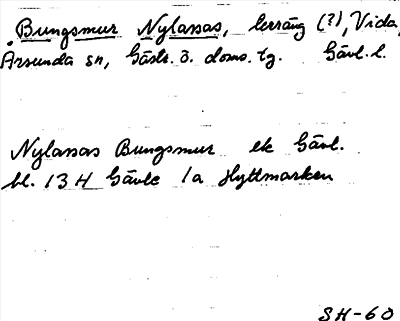 Bungsmur Nylassas, terräng (?), Vida,
Årsunda sn, Gästr. ö. doms. tg. Gävl. l.
Nylassas Bungsmur ek Gävl.
bl. 13 H Gävle 1a Hyttmarken
SH-60